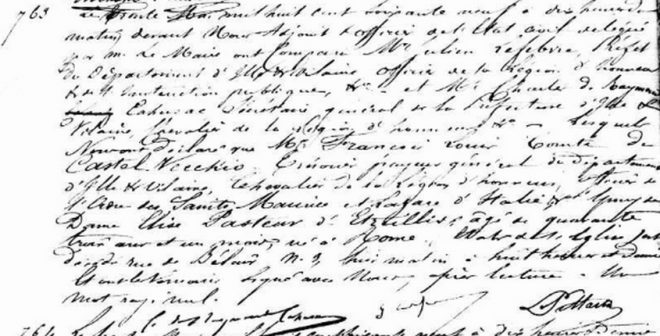 763
Le trente Mai mil huit cent soixante neuf à dix heures du
matin devant Nous Adjoint & officier de l'Etat civil délégué
par M. le Maire ont comparu Mr. Julien Lefebvre, Préfet
du Département d'Ille & Vilaine, officier de la Légion d'honneur
& de l'Instruction publique, &c. et Mr. Charles de Raymond
Cahusac Secrétaire général de la Préfecture d'Ille &
Vilaine, Chevalier de la Légion d'honneur &c. Lesquels
Nous ont déclaré que Mr. François Louis Comte de
Castel-Vecchio, Trésorier payeur général du département
d'Ille & Vilaine, Chevalier de la Légion d'honneur, officier de
l'Ordre des Saints Maurice et Lazare d'Italie, époux de
Dame Elise Pasteur d'Etreillis, âgé de quarante
trois ans et un mois, né à Rome,
décédé rue de N. 3, hier matin à huit heures et demie
Et ont les témoins signé avec Nous, après lecture. Un
mot rayé nul.
C. de Raymond Cahusac
764